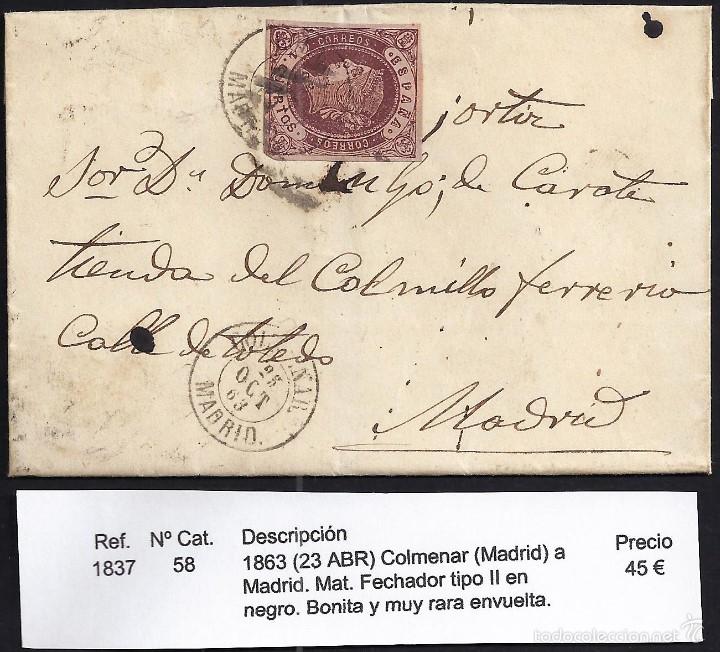 CORREOS
ESPAÑA
CUARTOS
CORREOS
Sor. Dn Domingo; de Carate
tienda del Colmillo ferrerio
Calle de toledo
Madrid
COLMENAR
OCT
63
MADRID.
Ref. Nº Cat. Descripción Precio
1837 58 1863 (23 ABR) Colmenar (Madrid) a 45 €
Madrid. Mat. Fechador tipo II en
negro. Bonita y muy rara envuelta.
todocoleccion.net